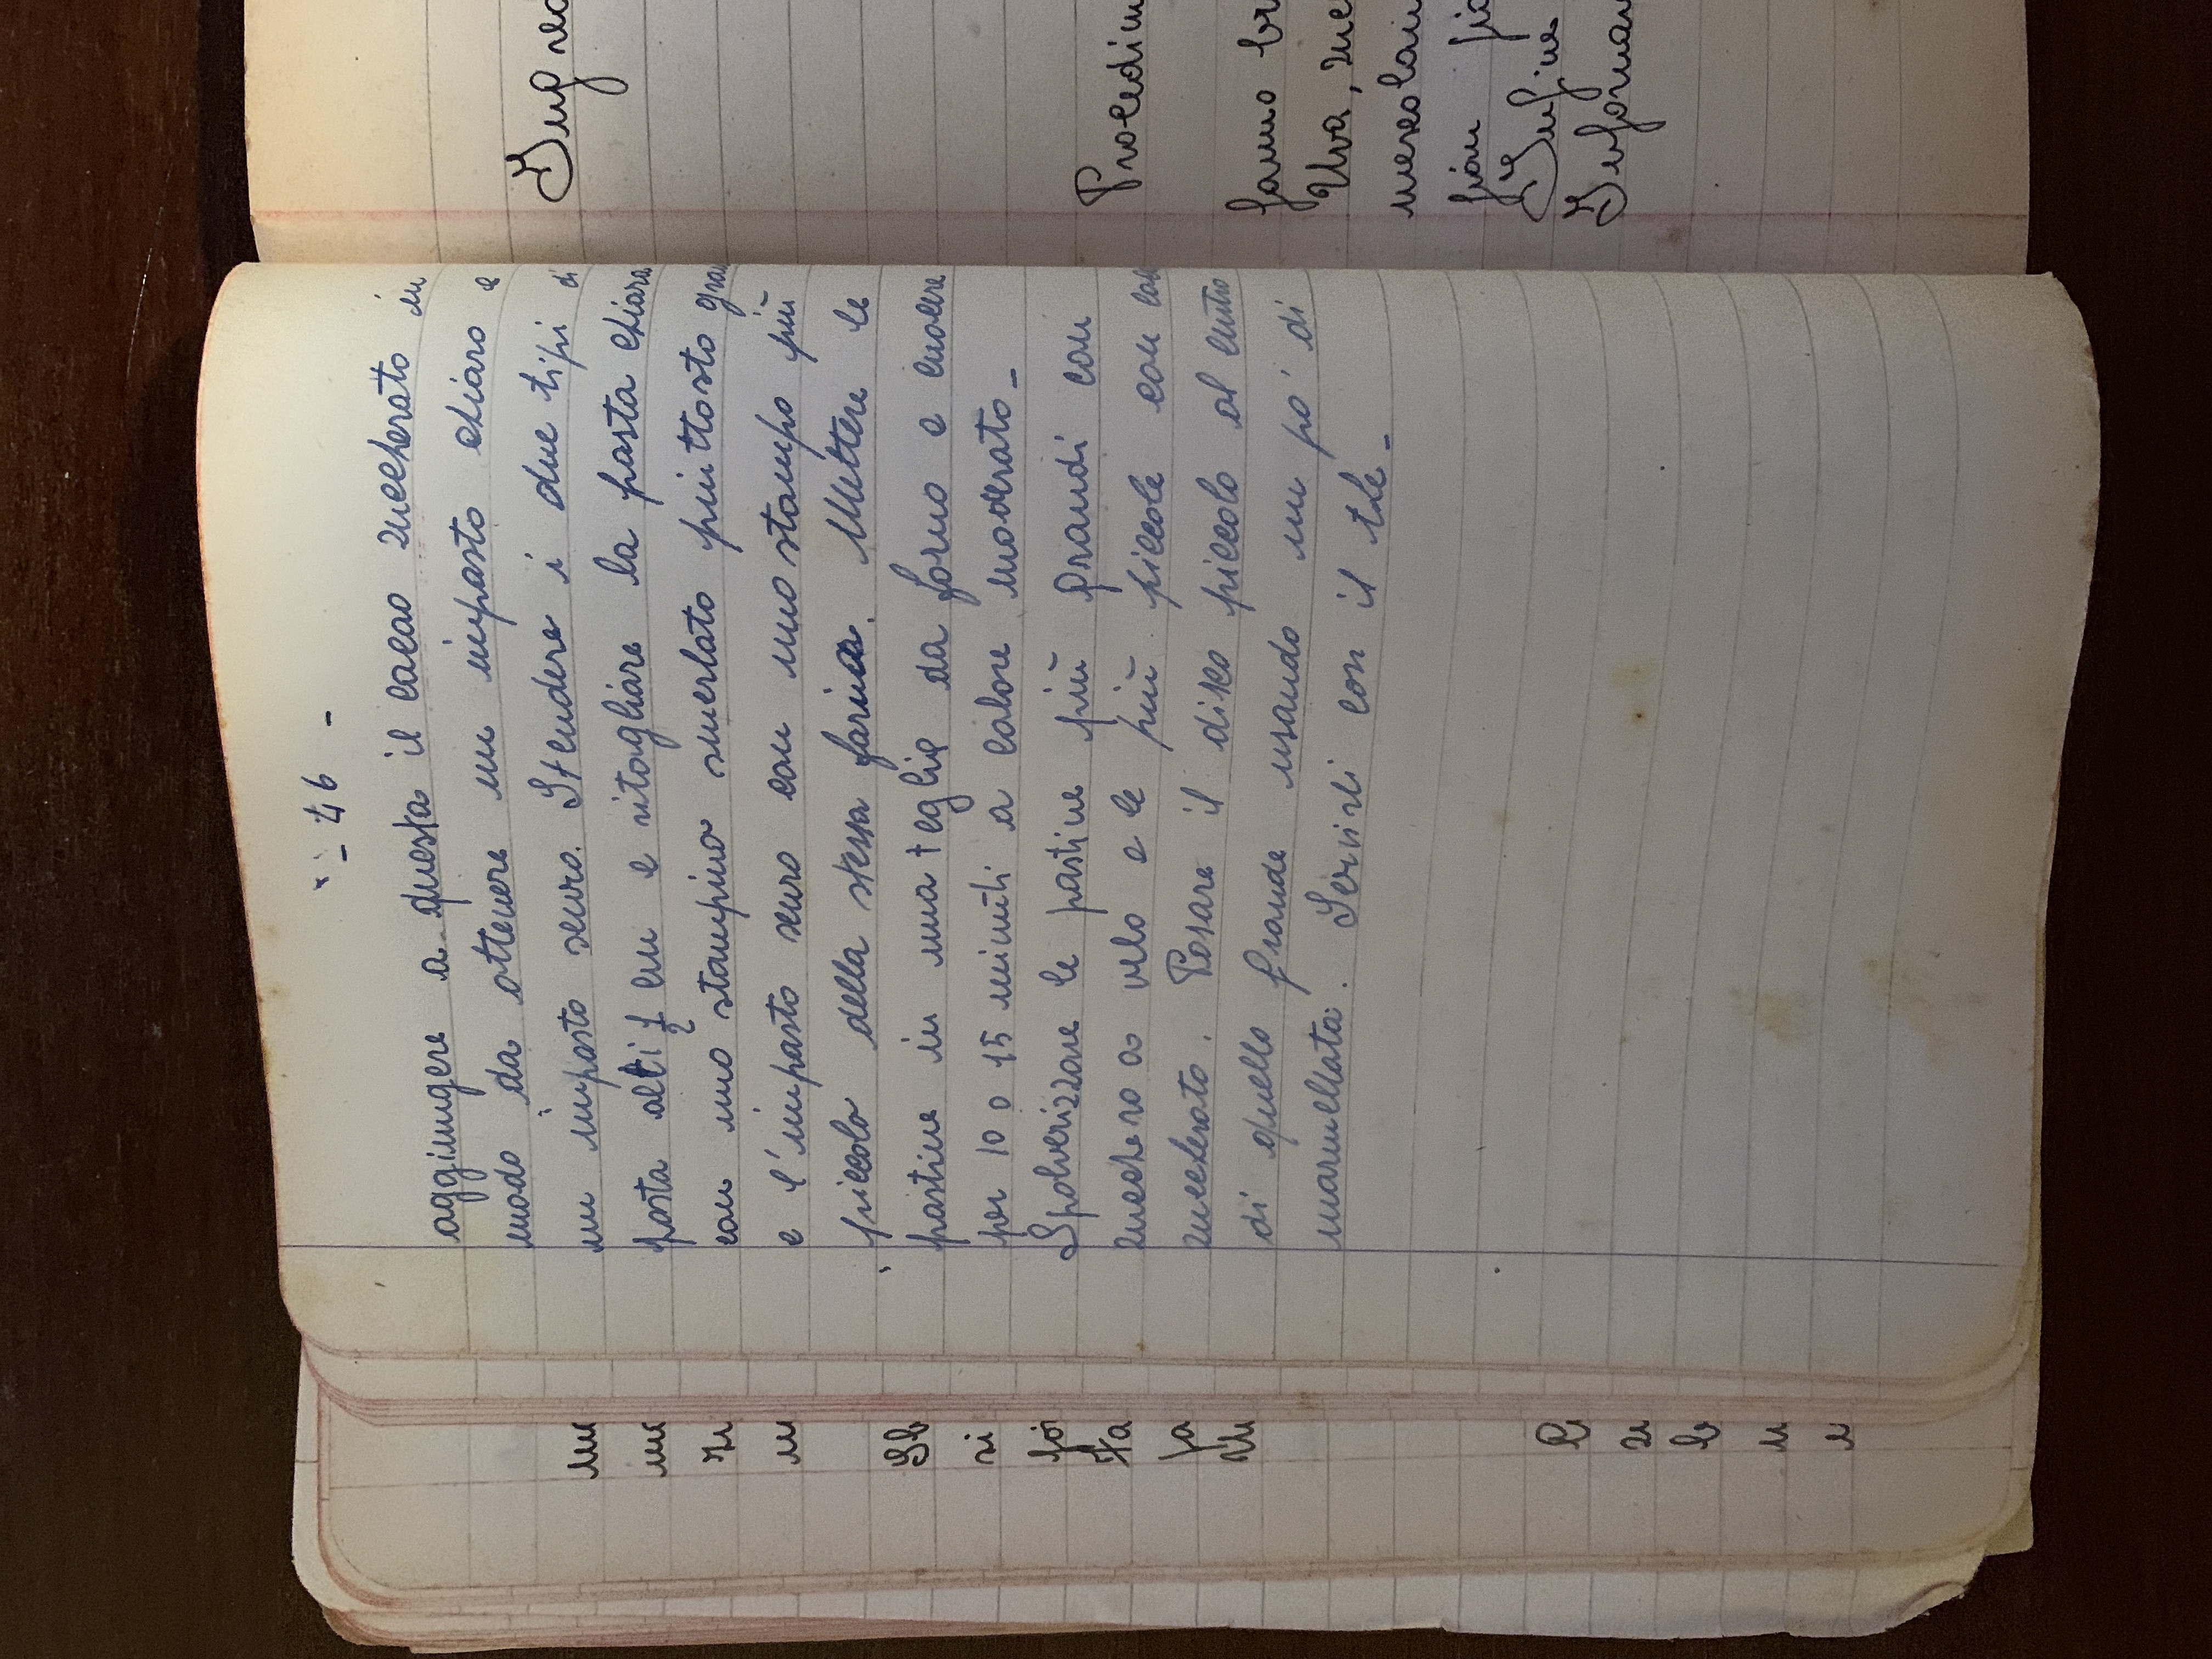 - 46 -
aggiungere a questa il cacao zuccherato in
modo da ottenere un impasto chiaro e
un impasto scuro. Stendere i due tipi di
pasta alti 1/2 cm e ritagliare la pasta chiara
con uno stampino smerlato piuttosto gran
e l'impasto scuro con uno stampo più
piccolo della stessa forma. Mettere le
pastine in una teglia da forno e cuocere
per 10 o 15 minuti a calore moderato_
Spolverizzare le pastine più grandi con
zucchero a velo e le più piccole con
zuccherato. Posare il disco piccolo al centro
di quello grande usando un po' di
marmellata. Servirli con il the_
mo
mo
zu
Sb
si
Ta
pa
zu
b
Ingred
Procedim
fanno br
Uva, zuc
mescolan
pian pia
Infine
Inforna